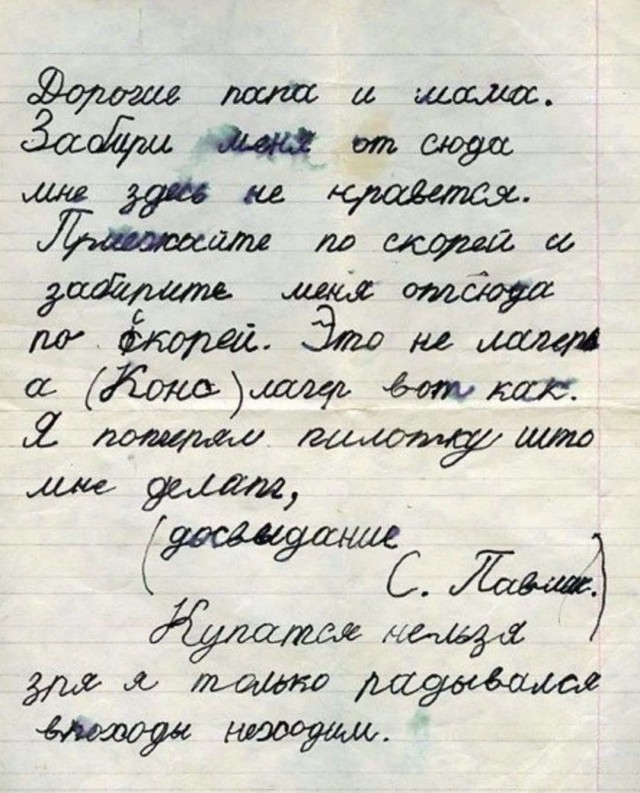 Дорогие папа и мама.
Забири меня от сюда
мне здесь не нравется.
Приезжайте по скорей и
забирите меня отсюда
по скорей. Это не лагерь
а (Конс) лагер вот как.
Я потерял пилотку што
мне делать,
(досвидание
С. Павлик.)
Купатся нельзя
зря я только радывался
впоходы неходим.